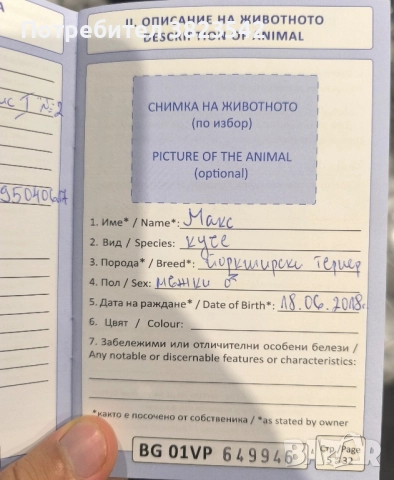 А
ис Т №2
95040647
II. ОПИСАНИЕ НА ЖИВОТНОТО
DESCRIPTION OF ANIMAL
СНИМКА НА ЖИВОТНОТО
(по избор)
PICTURE OF THE ANIMAL
(optional)
1. Име* / Name*: Макс
2. Вид / Species: куче
3. Порода* / Breed*: Йоркширски териер
4. Пол / Sex: мъжки ♂
5. Дата на раждане* / Date of Birth*: 18.06.2018г
6. Цвят / Colour:
7. Забележими или отличителни особени белези /
Any notable or discernable features or characteristics:
*както е посочено от собственика / *as stated by owner
BG 01VP 649946
Стр./Page
5 - 32